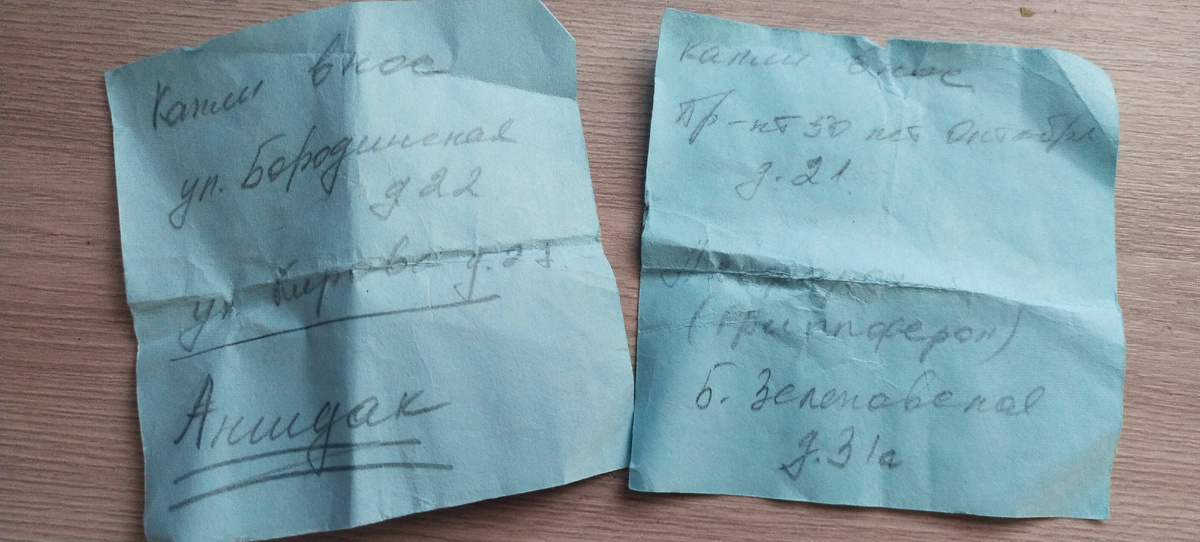 Капли внос
ул. Бородинская
д 22
ул. Кирова д.27.
Анидак
капли внос
Пр-кт 50 лет Октября
д.21.
(гриппферон)
Б. Зеленовская
д.31а